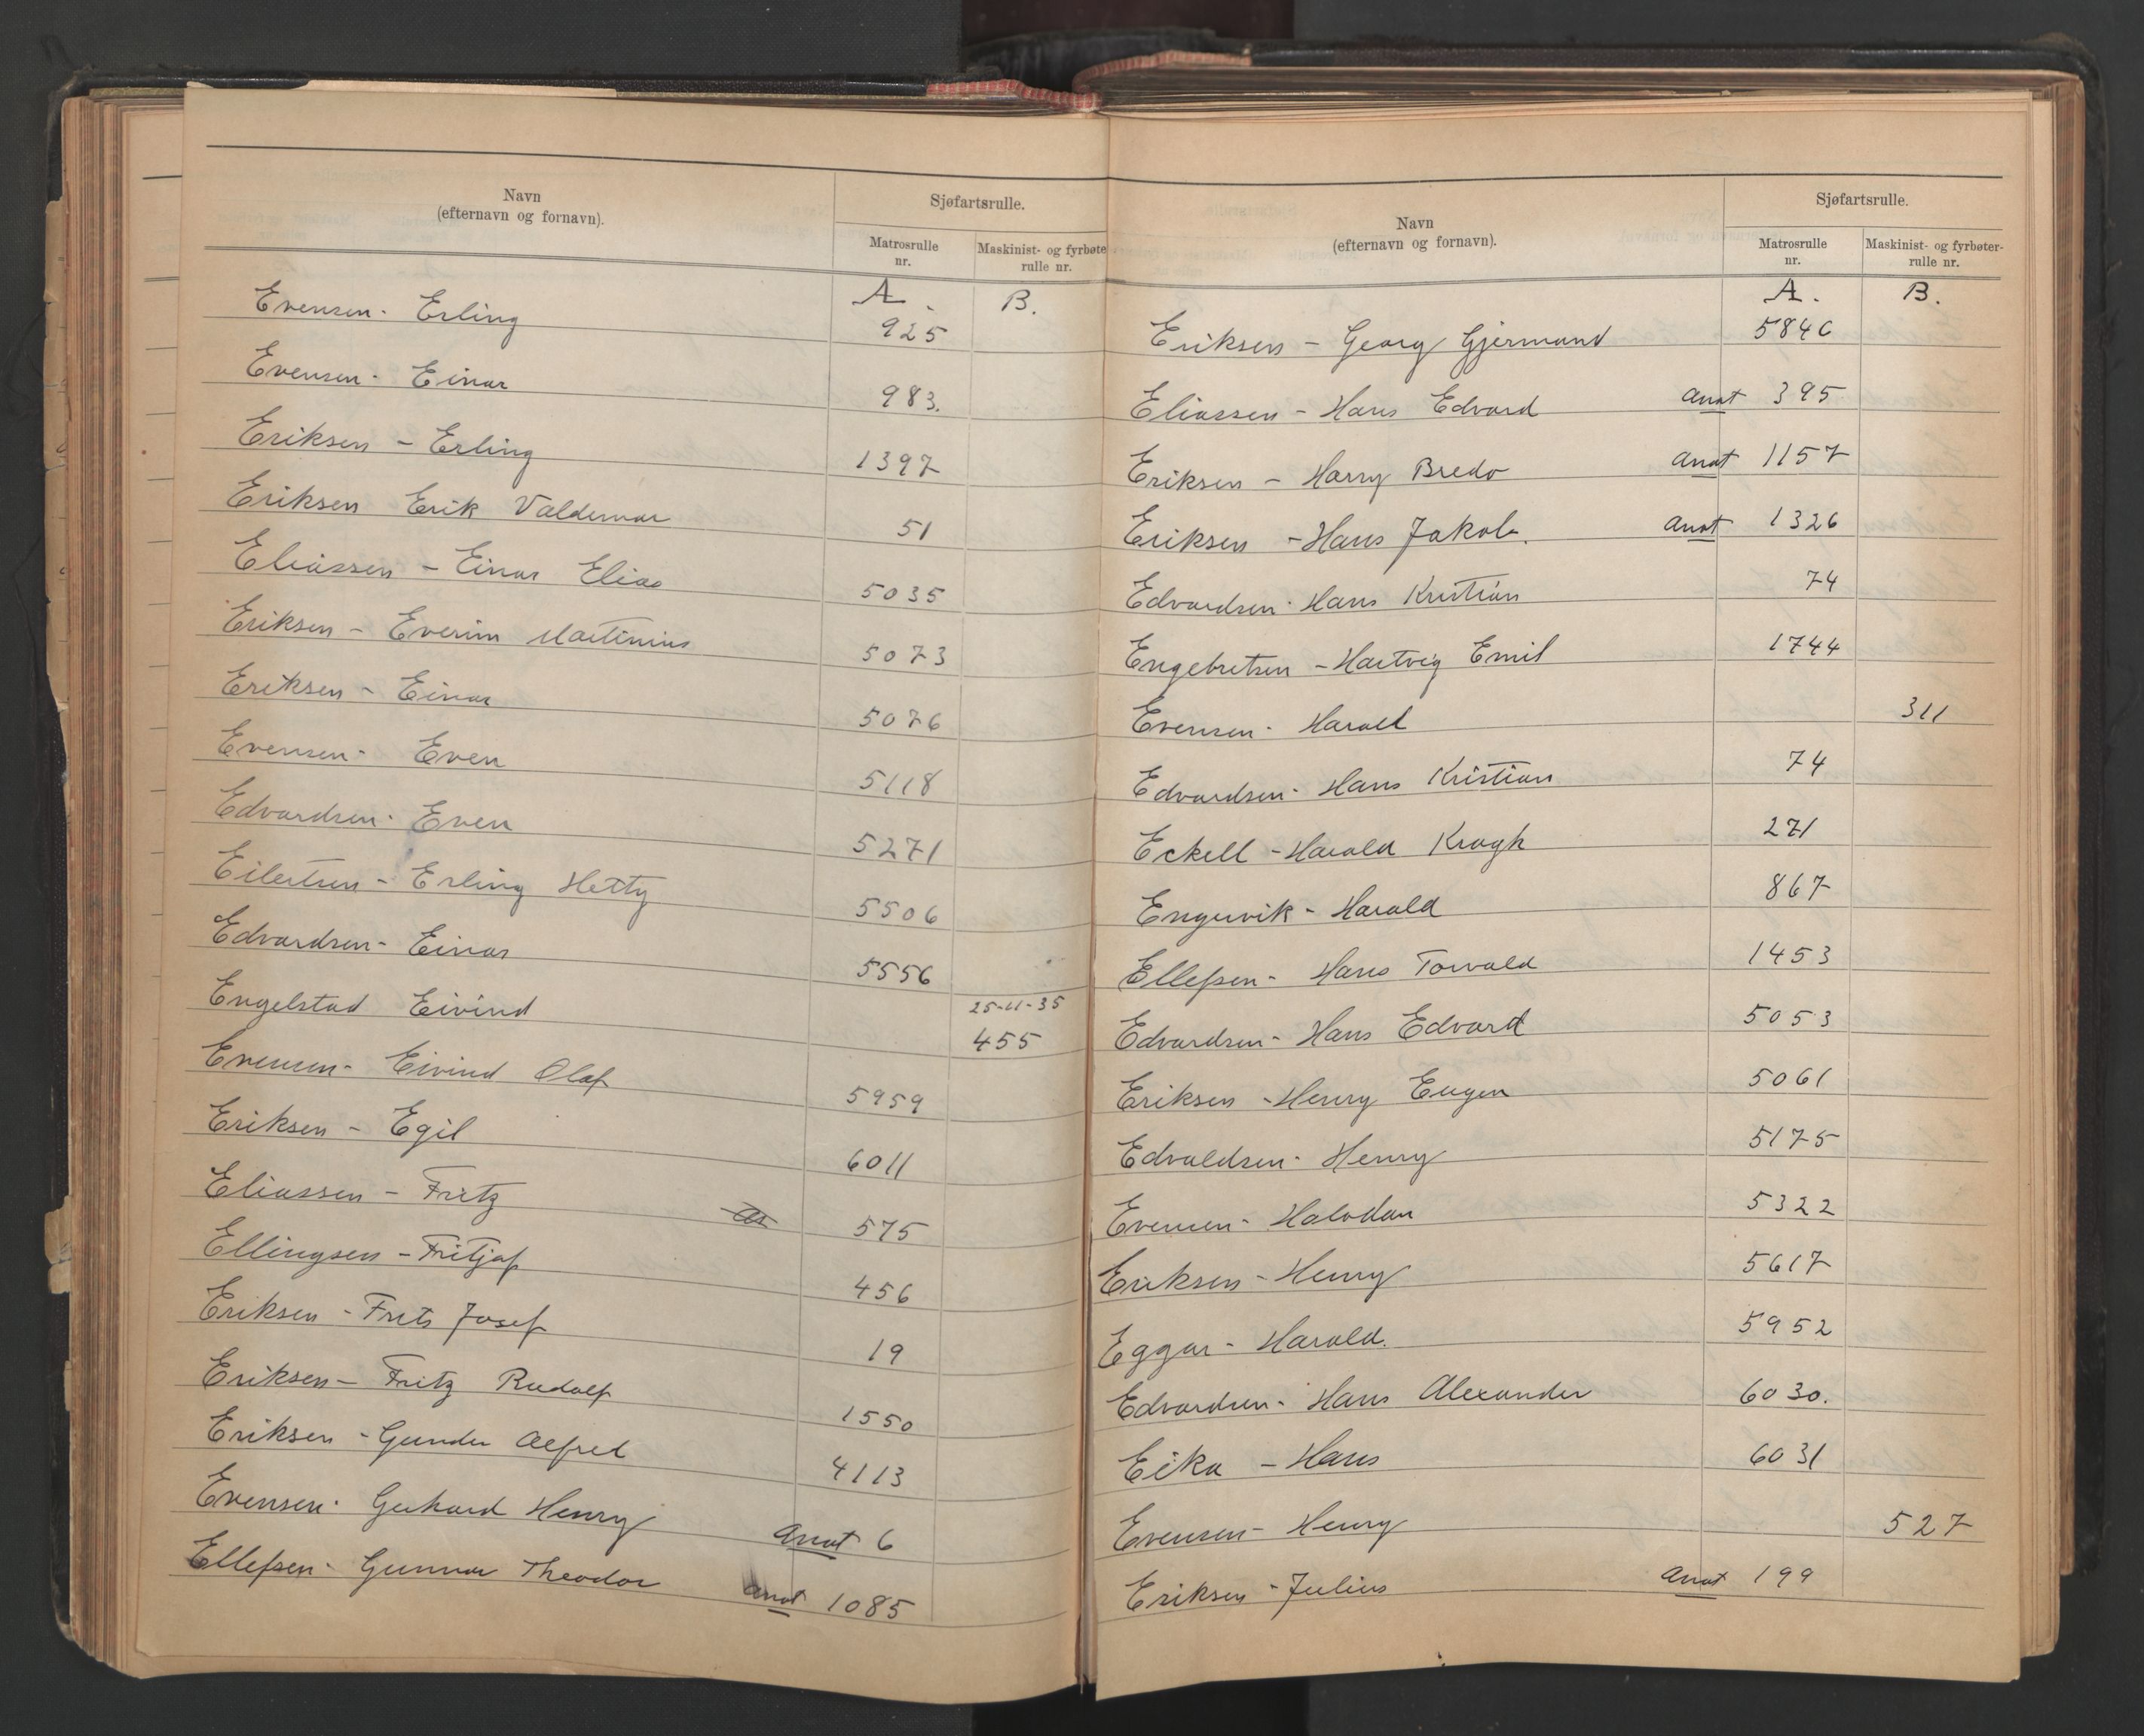 Navn
(efternavn og fornavn).
Sjøfartsrulle.
Matrosrulle
nr.
Maskinist- og fyrbøte
rulle nr.
A. B.
Evensen - Erling 925
Evensen - Einar 983.
Eriksen - Erling 1397
Eriksen Erik Valdemar 51
Eliassen - Einar Elias 5035
Eriksen - Everim Martinius 5073
Eriksen - Einar 5076
Evensen - Even 5118
Edvardsen - Even 5271
Eilertsen - Erling Hetty 5506
Edvardsen - Einar 5556
Engelstad Eivind 25-11-35
455
Evensen - Eivind Olaf 5959
Eriksen - Egil 6011
Eliassen - Fritz 575
Ellingsen - Fritjof 456
Eriksen - Frits Josef 19
Eriksen - Fritz Rudolf 1550
Eriksen - Gunder Alfred 4113
Evensen - Gerhard Henry Anot 6
Ellefsen - Gunnar Theodor Anot 1085
Navn
(efternavn og fornavn).
Sjøfartsrulle.
Matrosrulle
nr.
Maskinist- og fyrbøter-
rulle nr.
A. B.
Eriksen - Georg Gjermund 5846
Eliassen - Hans Edvard Anot 395
Eriksen - Harry Bredo Anot 1157
Eriksen - Hans Jakob. Anot 1326
Edvardsen - Hans Kristian 74
Engebretsen - Hartvig Emil 1744
Evensen - Harald 311
Edvardsen - Hans Kristian 74
Eckell - Harald Kragh 271
Engervik - Harald 867
Ellefsen - Hans Torvald 1453
Edvardsen - Hans Edvard 5053
Eriksen - Henry Eugen 5061
Edvaldsen - Henry 5175
Evensen - Halvdan 5322
Eriksen - Henry 5617
Eggar - Harald. 5952
Edvardsen - Hans Alexander 6030.
Eika - Hans 6031
Evensen - Henry 527
Eriksen - Julius Anot 199